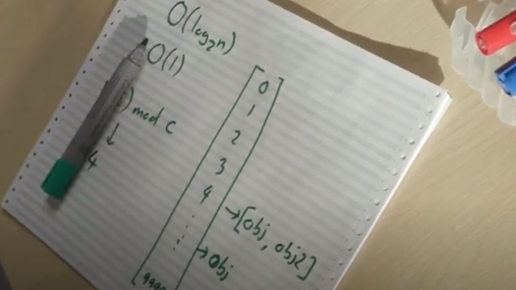 O(log₂n)
O(1)
) mod c
↓
4
0
1
2
3
4
→[obj, obj2]
→obj